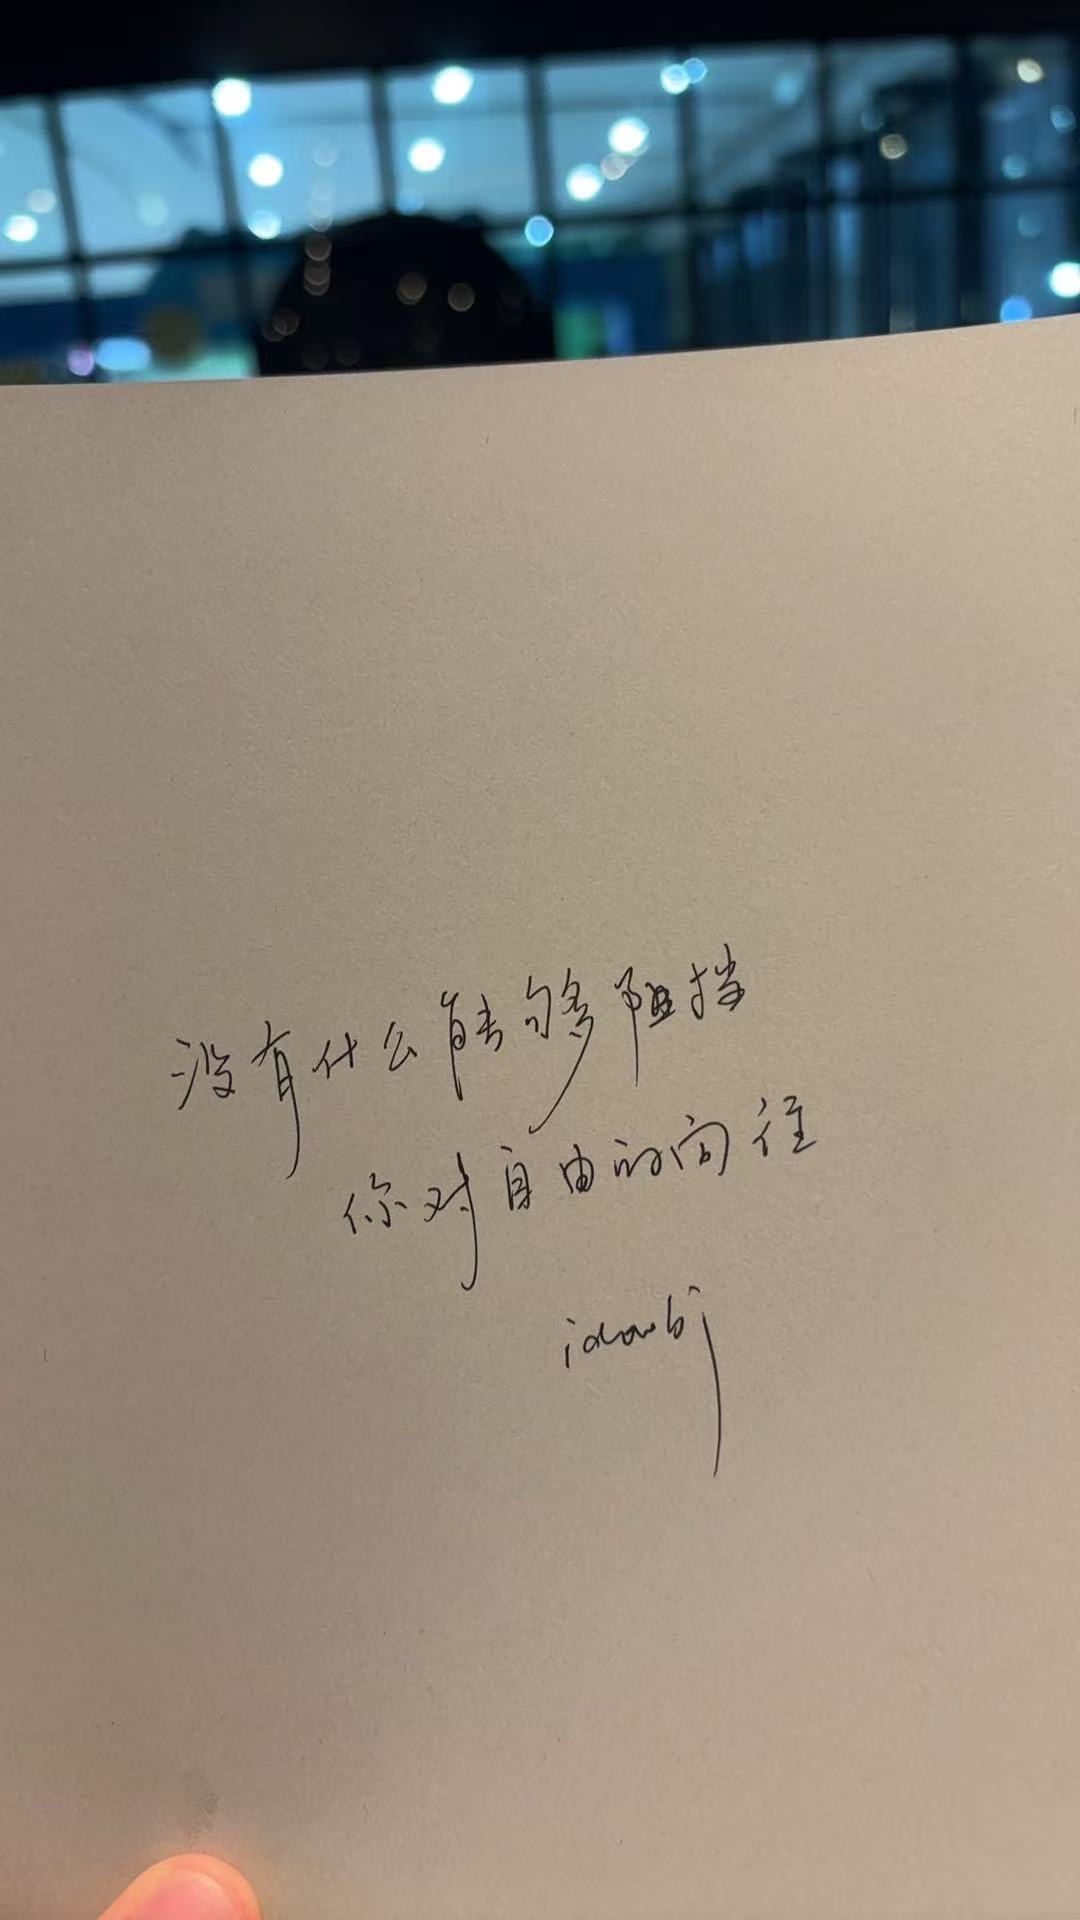 没有什么能够阻挡
你对自由的向往